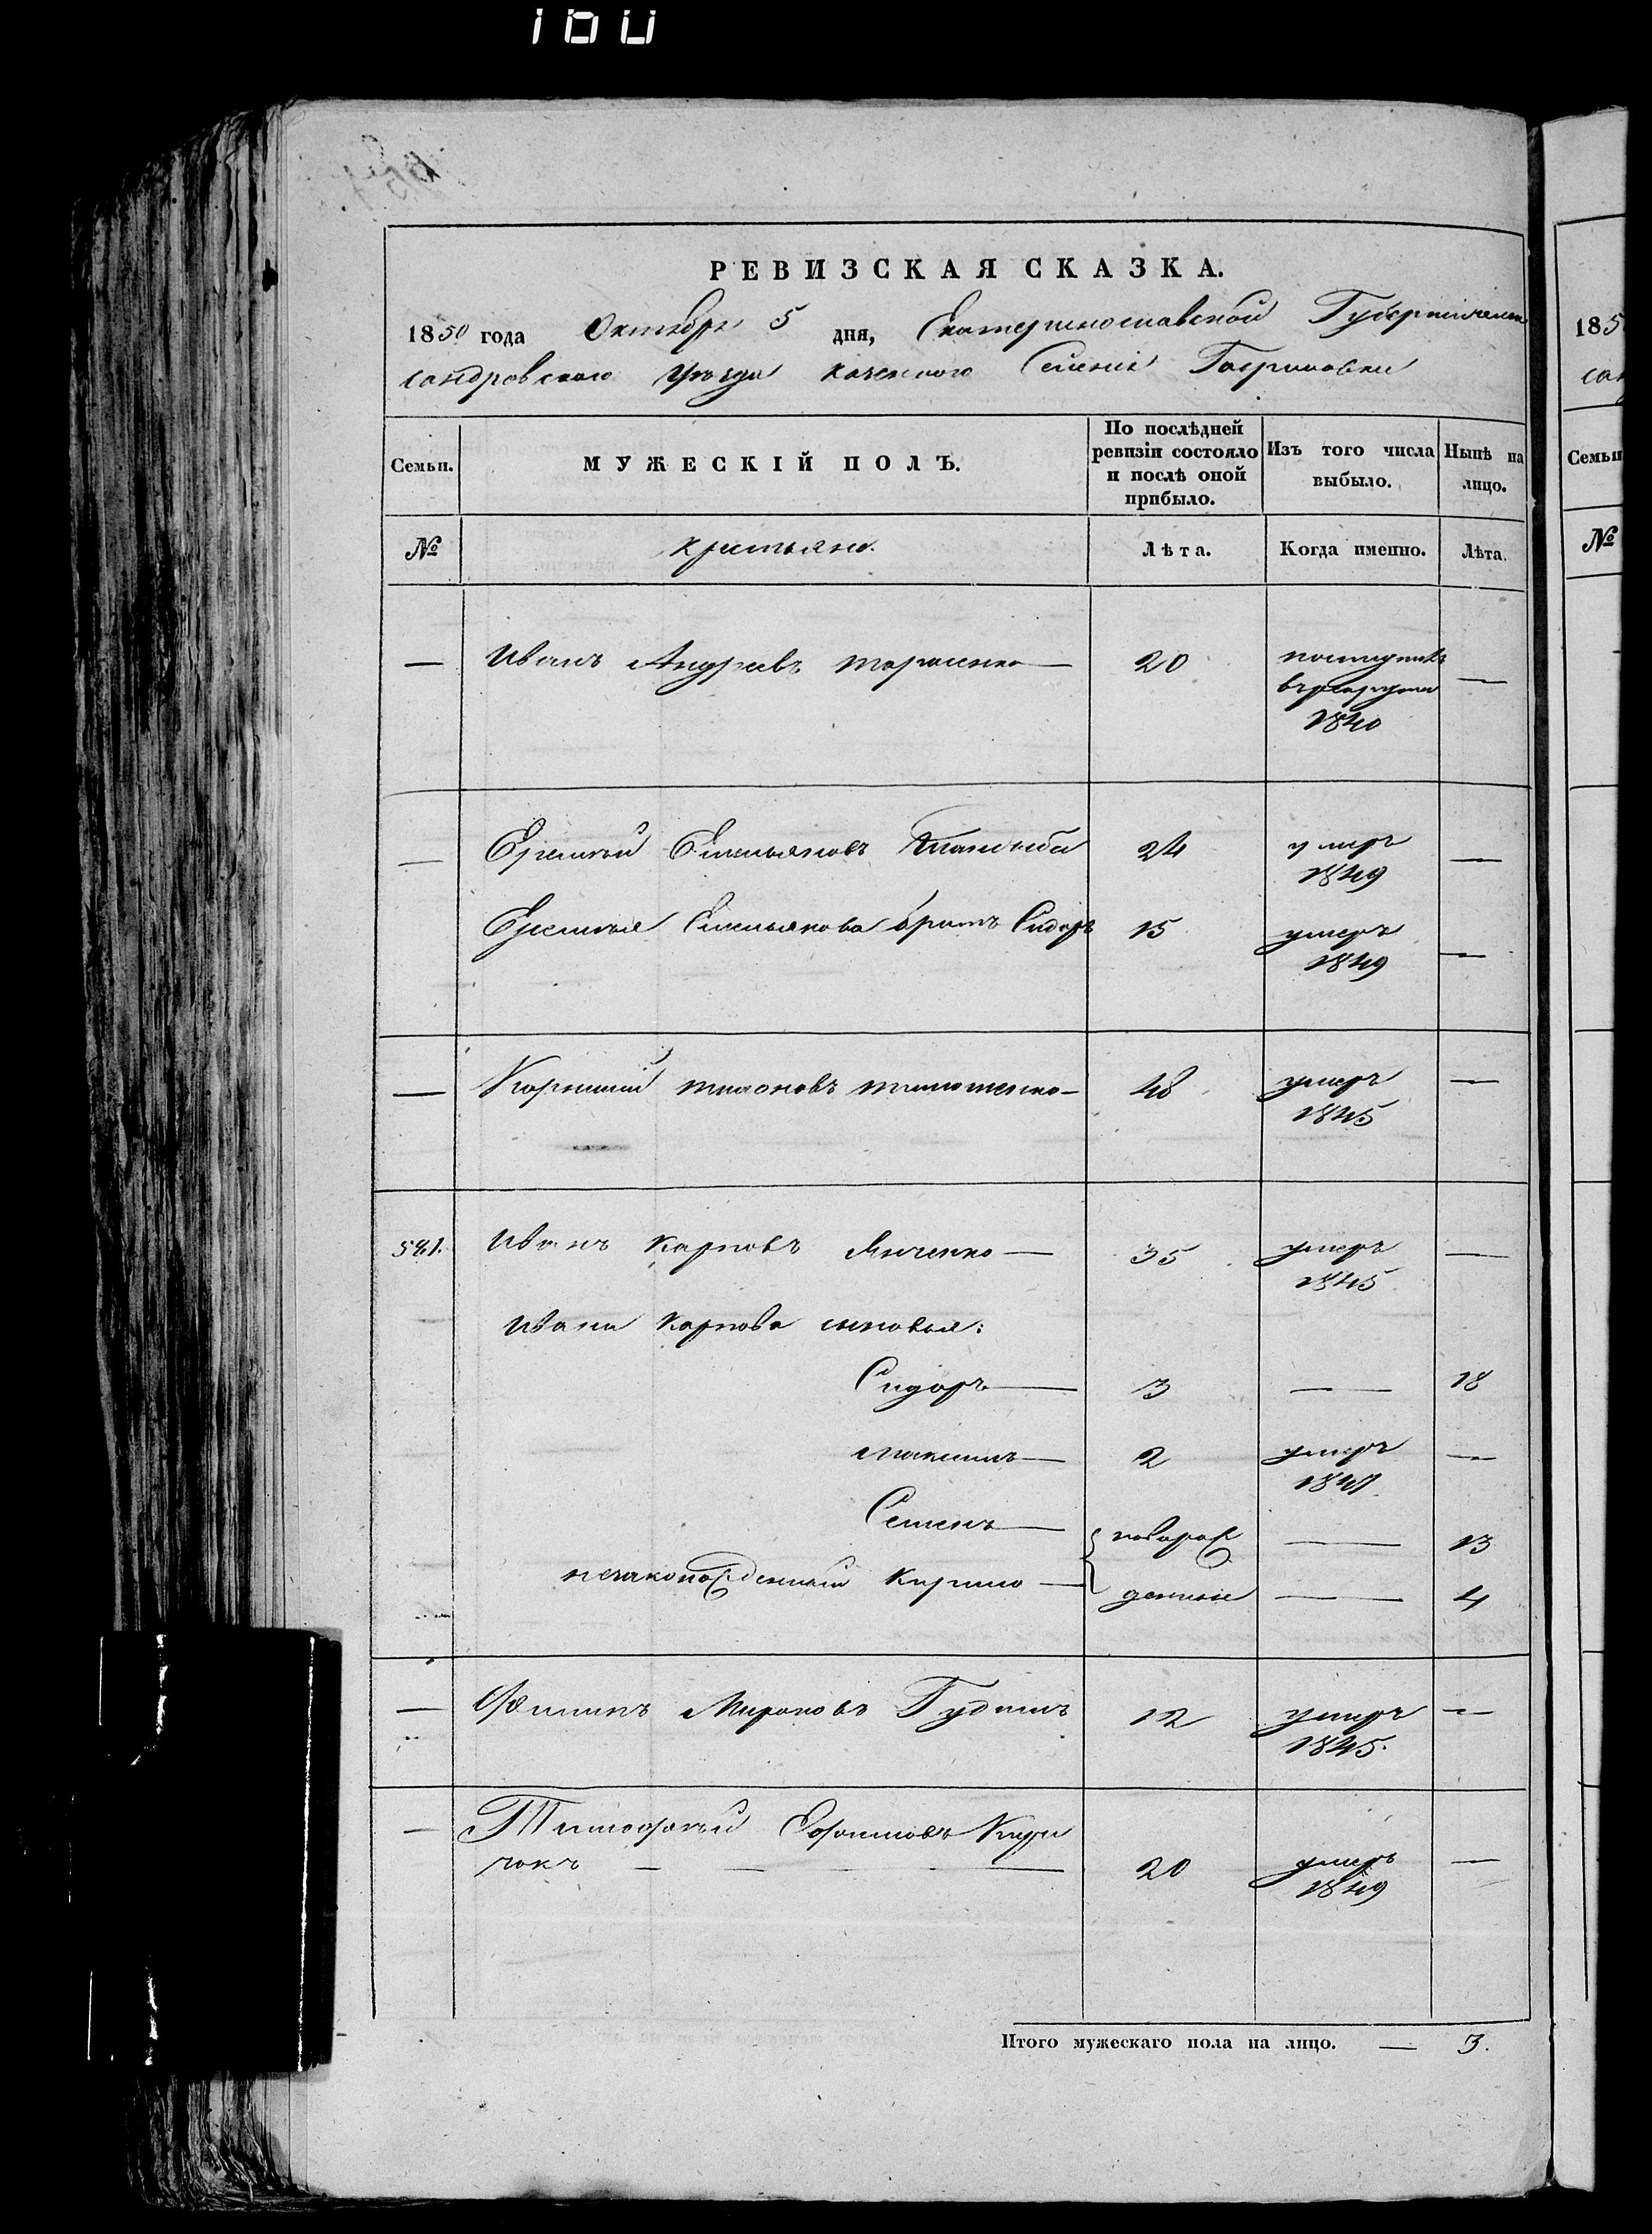 100
РЕВИЗСКАЯ СКАЗКА.
1850 года Октября 5 дня, Екатеринославской Губерніи Алек
сандровскаго Уѣзда казенного Селенія Гавриловки
Семьи. МУЖЕСКІЙ ПОЛЪ. По послѣдней ревизіи состояло и послѣ оной прибыло. Изъ того числа выбыло. Нынѣ на лицо.
№ крестьяне. Лѣта. Когда именно. Лѣта.
— Иванъ Андреевъ тарасенко — 20 поступилъ —
в рекруты
1840
— Еремѣй Емельяновъ 24 умеръ —
1849
Еремѣя Емельянова братъ Сидоръ 15 умеръ —
1849
— Корнилий тихоновъ тимошенко — 48 умеръ —
1845
541. Иванъ Карповъ Янченко — 35 умеръ —
1845
Ивана Карпова сыновья:
Сидоръ — 3 — 18
Максимъ — 2 умеръ —
1841
Семенъ — новорож — 13
незаконорожденный Кирило — денные — 4
— Филипъ Мироновъ Гудимъ 12 умеръ —
1845.
— Тимофѣй Ефимовъ
20 умеръ —
1849
Итого мужескаго пола на лицо. — 3.
185
Семьи
№